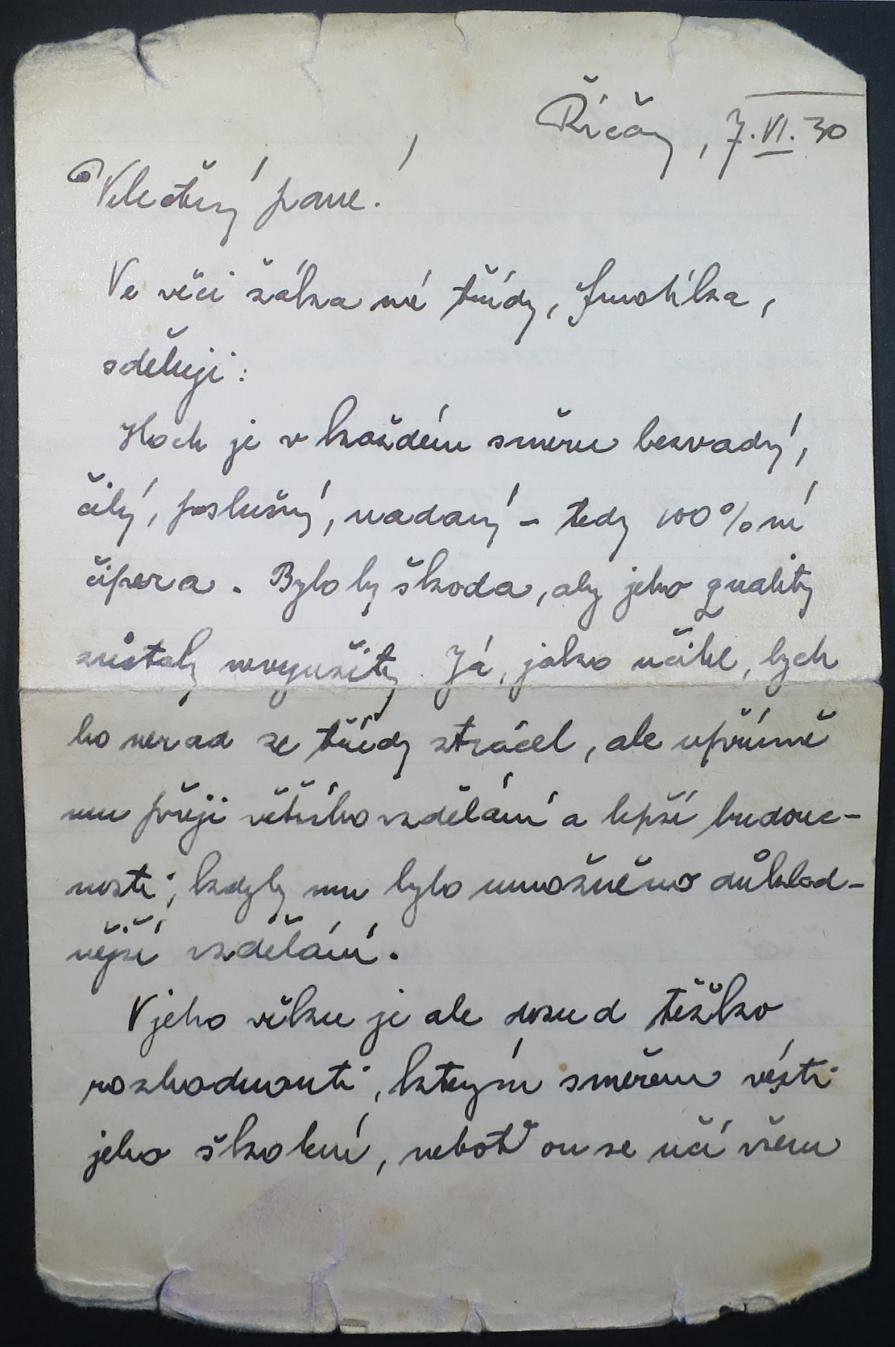 Říčany, 7.VI.30
Velectěný pane!
Ve věci žáka mé třídy, Smotlka,
sděluji:
Hoch je v každém směru bezvadný,
čilý, poslušný, nadaný – tedy 100%ní
čipera. Bylo by škoda, aby jeho quality
zůstaly nevyužity. Já, jako učitel, bych
ho nerad ze třídy ztrácel, ale upřímně
mu přeji většího vzdělání a lepší budouc-
nosti, kdyby mu bylo umožněno důklad-
nější vzdělání.
V jeho věku je ale dosud těžko
rozhodnouti, kterým směrem vésti
jeho školení, neboť on se učí všemu